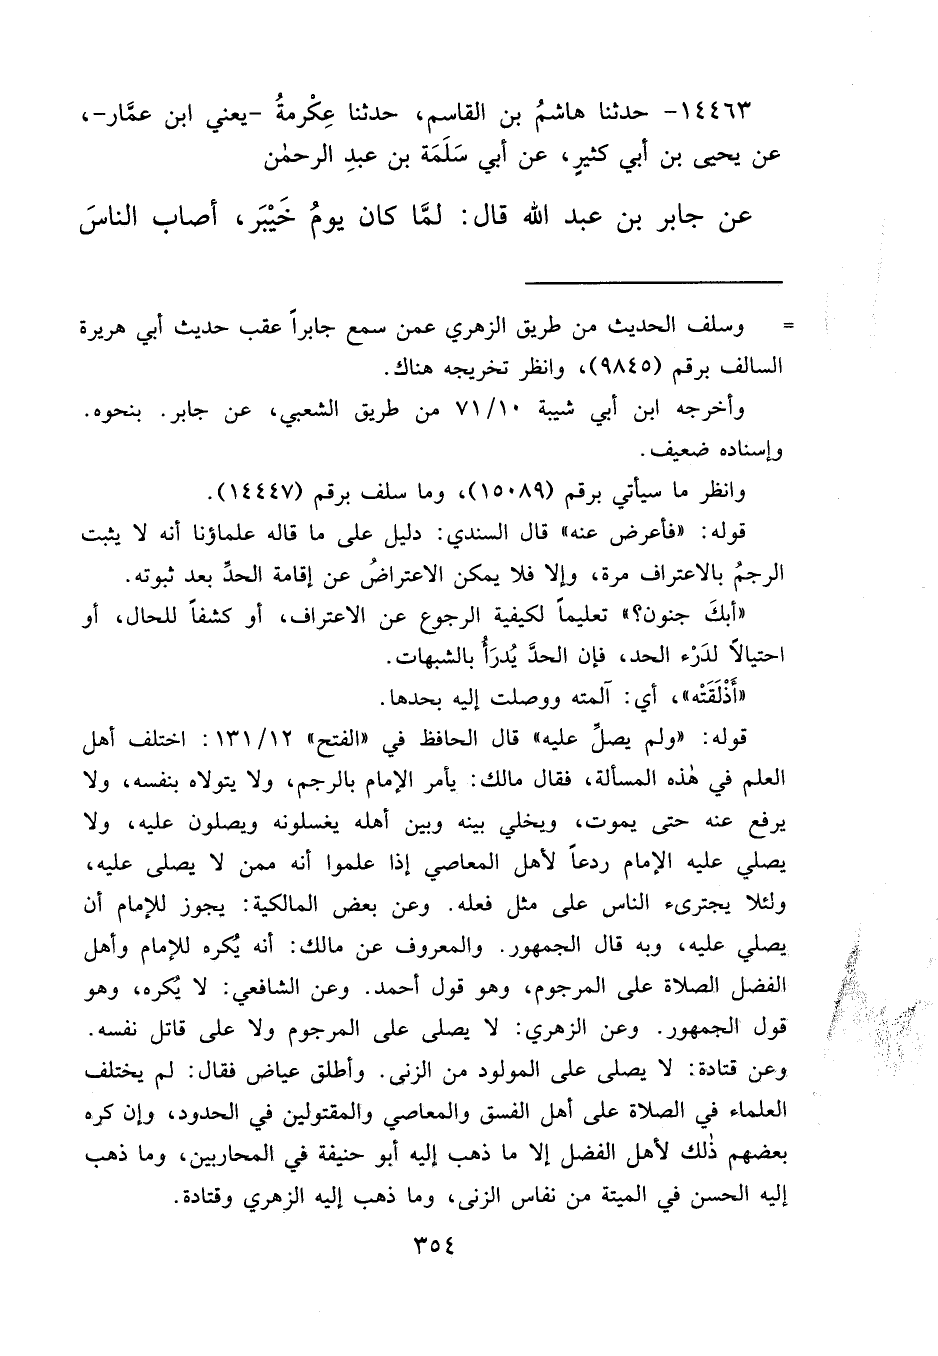 ١٤٤٦٣- حدثنا هاشمُ بن القاسم، حدثنا عِكْرمةُ -يعني ابن عمَّار-،
عن يحيى بن أبي كثيرٍ، عن أبي سَلَمَة بن عبدِ الرحمٰن
عن جابر بن عبد الله قال: لمَّا كان يومُ خَيْبَر، أصاب الناسَ
= وسلف الحديث من طريق الزهري عمن سمع جابراً عقب حديث أبي هريرة
السالف برقم (٩٨٤٥)، وانظر تخريجه هناك.
وأخرجه ابن أبي شيبة ٧١/١٠ من طريق الشعبي، عن جابر. بنحوه.
وإسناده ضعيف.
وانظر ما سيأتي برقم (١٥٠٨٩)، وما سلف برقم (١٤٤٤٧).
قوله: «فأعرض عنه» قال السندي: دليل على ما قاله علماؤنا أنه لا يثبت
الرجمُ بالاعتراف مرة، وإلا فلا يمكن الاعتراضُ عن إقامة الحدِّ بعد ثبوته.
«أبكَ جنون؟» تعليماً لكيفية الرجوع عن الاعتراف، أو كشفاً للحال، أو
احتيالاً لدَرْء الحد، فإن الحدَّ يُدرَأُ بالشبهات.
«أَذْلَقَتْه»، أي: آلمته ووصلت إليه بحدها.
قوله: «ولم يصلِّ عليه» قال الحافظ في «الفتح» ١٣١/١٢: اختلف أهل
العلم في هٰذه المسألة، فقال مالك: يأمر الإمام بالرجم، ولا يتولاه بنفسه، ولا
يرفع عنه حتى يموت، ويخلي بينه وبين أهله يغسلونه ويصلون عليه، ولا
يصلي عليه الإمام ردعاً لأهل المعاصي إذا علموا أنه ممن لا يصلى عليه،
ولئلا يجترىء الناس على مثل فعله. وعن بعض المالكية: يجوز للإمام أن
يصلي عليه، وبه قال الجمهور. والمعروف عن مالك: أنه يُكره للإمام وأهل
الفضل الصلاة على المرجوم، وهو قول أحمد. وعن الشافعي: لا يُكره، وهو
قول الجمهور. وعن الزهري: لا يصلى على المرجوم ولا على قاتل نفسه.
وعن قتادة: لا يصلى على المولود من الزنى. وأطلق عياض فقال: لم يختلف
العلماء في الصلاة على أهل الفسق والمعاصي والمقتولين في الحدود، وإن كره
بعضهم ذٰلك لأهل الفضل إلا ما ذهب إليه أبو حنيفة في المحاربين، وما ذهب
إليه الحسن في الميتة من نفاس الزنى، وما ذهب إليه الزهري وقتادة.
٣٥٤